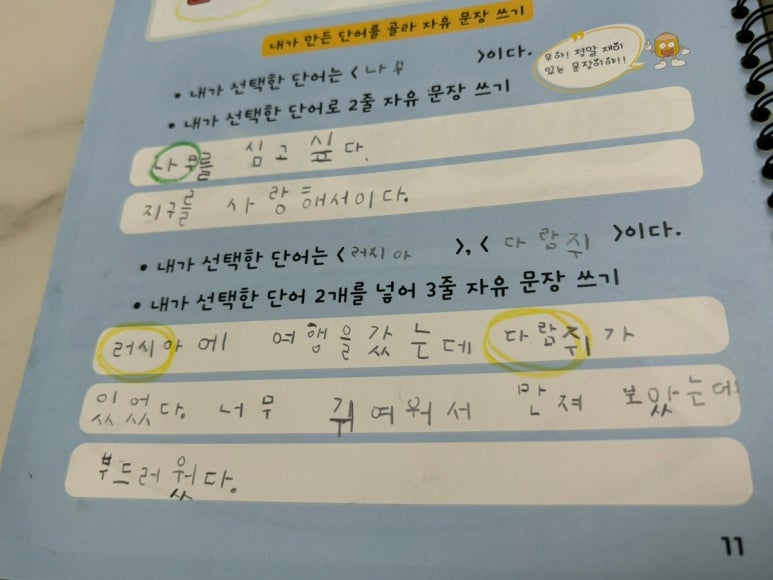 내가 만든 단어를 골라 자유 문장 쓰기
• 내가 선택한 단어는 <나무>이다.
우와! 정말 재미
있는 문장이야!!
• 내가 선택한 단어로 2줄 자유 문장 쓰기
나무를 심고 싶다.
지구를 사랑해서이다.
• 내가 선택한 단어는 <러시아>, <다람쥐>이다.
• 내가 선택한 단어 2개를 넣어 3줄 자유 문장 쓰기
러시아에 여행을 갔는데 다람쥐가
있었다. 너무 귀여워서 만져 보았는데
부드러웠다.
11